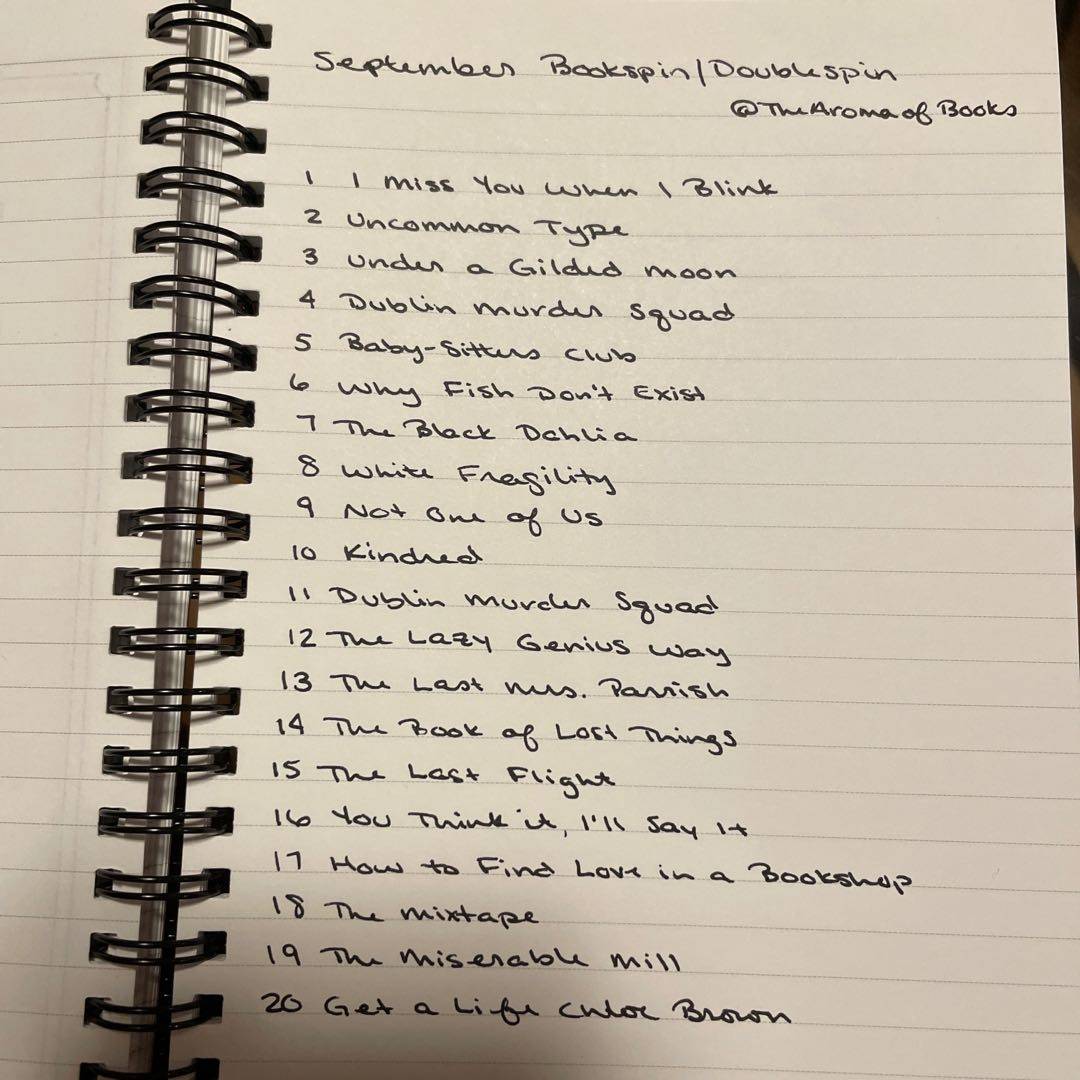 September Bookspin/Doublespin
@TheAromaofBooks
1 I Miss You When I Blink
2 Uncommon Type
3 Under a Gilded Moon
4 Dublin Murder Squad
5 Baby-Sitters Club
6 Why Fish Don't Exist
7 The Black Dahlia
8 White Fragility
9 Not One of Us
10 Kindred
11 Dublin Murder Squad
12 The Lazy Genius Way
13 The Last Mrs. Parrish
14 The Book of Lost Things
15 The Last Flight
16 You Think it, I'll Say It
17 How to Find Love in a Bookshop
18 The Mixtape
19 The Miserable Mill
20 Get a Life Chloe Brown